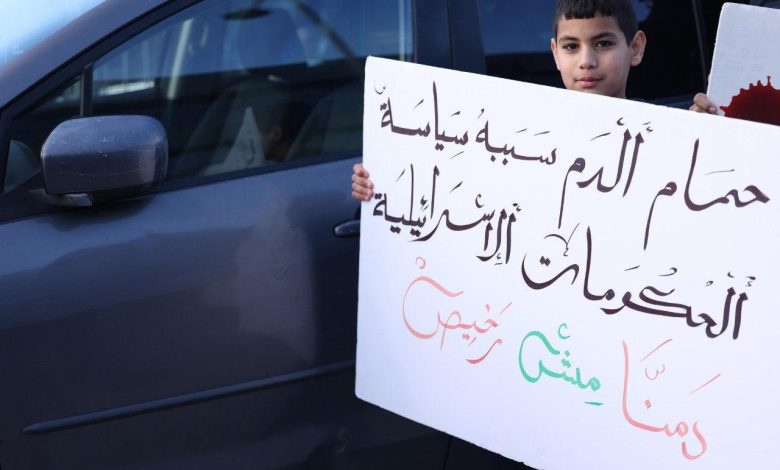 حمام ألدم سببهُ سيَاسَة
ألحُكوُمَات ألإسْرَائيلية
دمنّا مِش رَخِيص